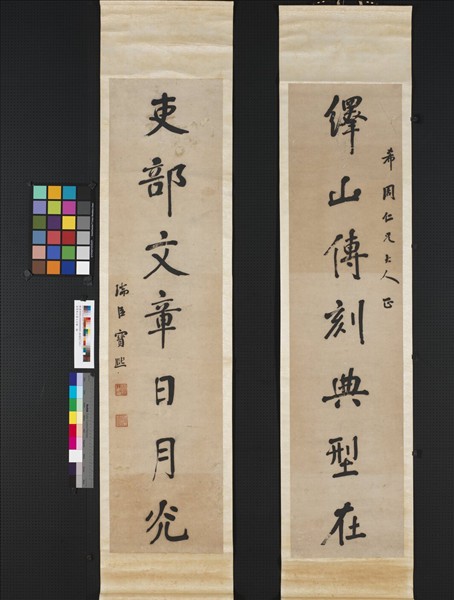 繹山傳刻典型在
希周仁兄大人正
吏部文章日月光
瑞臣寶熙